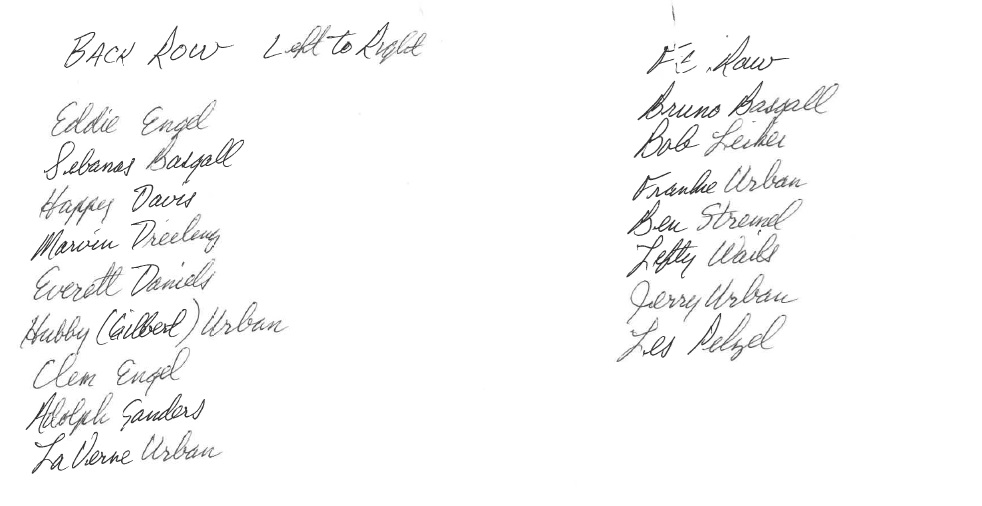 BACK ROW Left to Right
Eddie Engel
Sebanas Basgall
Happy Davis
Marvin Dreeling
Everett Daniels
Hubby (Gilbert) Urban
Clem Engel
Adolph Sanders
LaVerne Urban
Row
Bruno Basgall
Bob Leiker
Frankie Urban
Ben Streimel
Lefty Wails
Jerry Urban
Les Pelzel